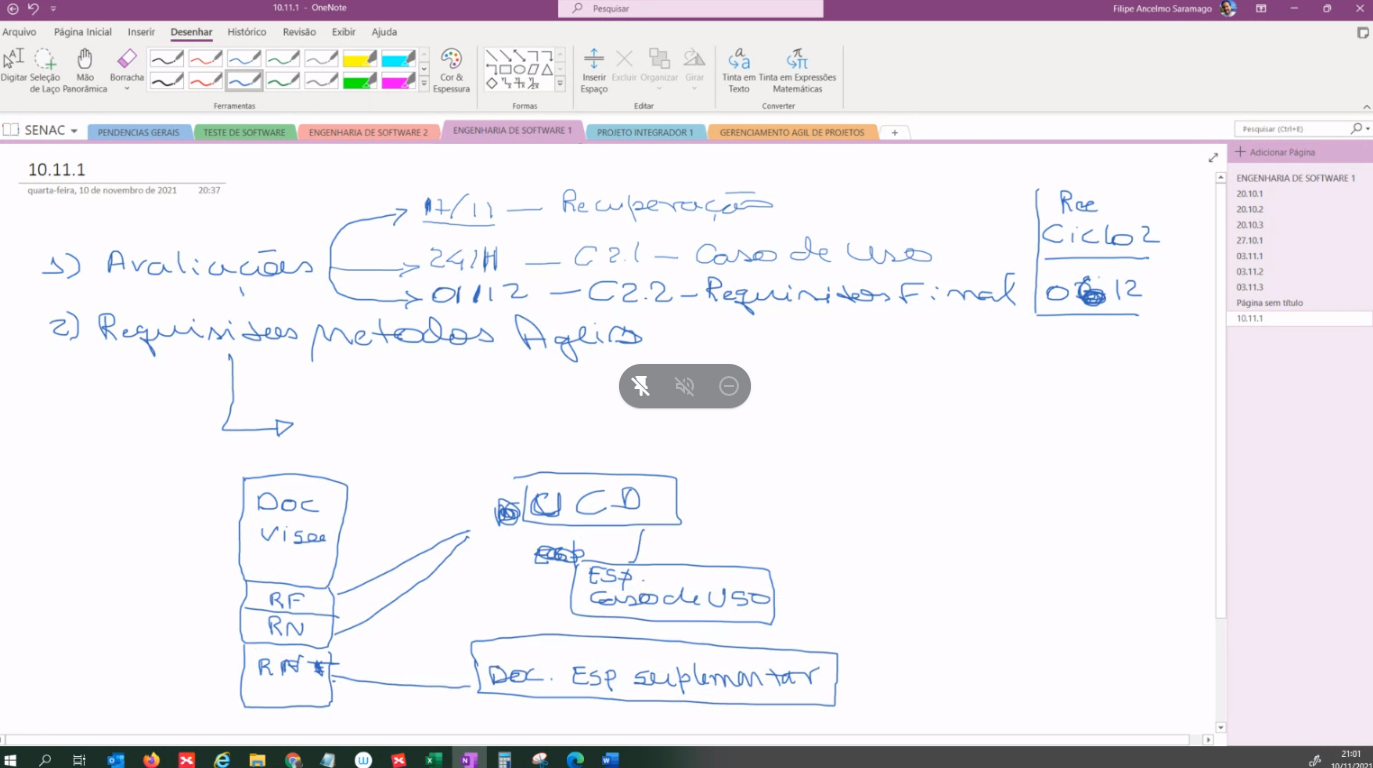 10.11.1 - OneNote
Pesquisar
Filipe Ancelmo Saramago
Arquivo Página Inicial Inserir Desenhar Histórico Revisão Exibir Ajuda
Digitar Seleção de Laço Mão Panorâmica Borracha Cor & Espessura Inserir Espaço Excluir Organizar Girar Tinta em Texto Tinta em Expressões Matemáticas
Ferramentas Formas Editar Converter
SENAC PENDENCIAS GERAIS TESTE DE SOFTWARE ENGENHARIA DE SOFTWARE 2 ENGENHARIA DE SOFTWARE 1 PROJETO INTEGRADOR 1 GERENCIAMENTO AGIL DE PROJETOS +
Pesquisar (Ctrl+E)
10.11.1
quarta-feira, 10 de novembro de 2021 20:37
17/11 — Recuperação
1) Avaliações
24/11 — C2.1 — Caso de Uso
01/12 — C2.2 — Requisitos Final
Rec
Ciclo 2
12
2) Requisitos metodos Ageis
Doc
Visao
RF
RN
UCD
Esp.
Caso de USO
Doc. Esp suplementar
Adicionar Página
ENGENHARIA DE SOFTWARE 1
20.10.1
20.10.2
20.10.3
27.10.1
03.11.1
03.11.2
03.11.3
Página sem título
10.11.1
21:01
10/11/2021